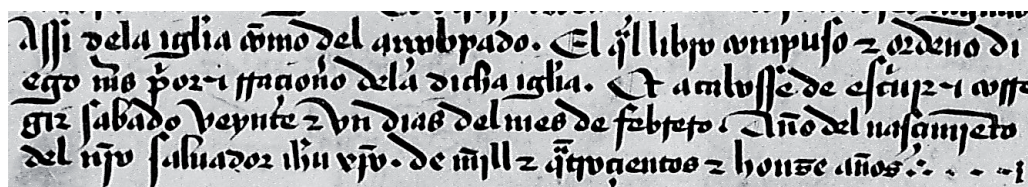 Assi dela iglia cõmo del arçobpado. El ql̃ libro compuso ⁊ ordeno di
ego mñs p̃or ⁊ rraçionẽo dela dicha iglia. Et acabosse de escͥuir ⁊ corre
gir sabado veynte ⁊ vn dias del mes de febrero. Año del nasçimiẽto
del nr̃o saluador ihũ xp̃o. de mill ⁊ q̃troçientos ⁊ honze años